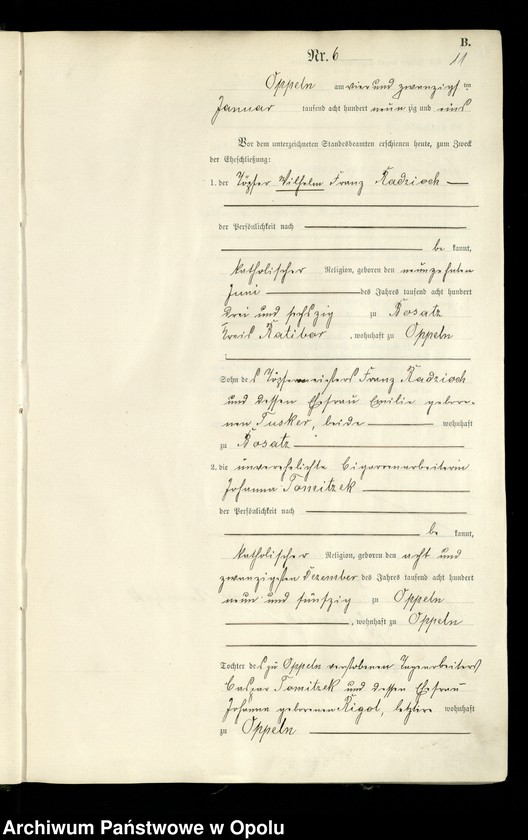 B.
11
Nr. 6
Oppeln am vier und zwanzigsten
Januar tausend acht hundert neunzig und eins
Vor dem unterzeichneten Standesbeamten erschienen heute, zum Zweck
der Eheschließung:
1. der Töpfer Wilhelm Franz Kadzioch
der Persönlichkeit nach
be kannt,
katholischer Religion, geboren den neunzehnten
Juni des Jahres tausend acht hundert
drei und sechszig zu Bosatz
Kreis Ratibor, wohnhaft zu Oppeln
Sohn des Töpfermeisters Franz Kadzioch
und dessen Ehefrau Emilie gebore-
nen Tusker, beide wohnhaft
zu Bosatz
2. die unverehelichte Cigarrenarbeiterin
Johanna Tomitzek
der Persönlichkeit nach
be kannt,
katholischer Religion, geboren den acht und
zwanzigsten Dezember des Jahres tausend acht hundert
neun und fünfzig zu Oppeln
, wohnhaft zu Oppeln
Tochter des zu Oppeln verstobenen Tagearbeiters
Caspar Tomitzek und dessen Ehefrau
Johanna geborenen Kigol, letztere wohnhaft
zu Oppeln
Archiwum Państwowe w Opolu